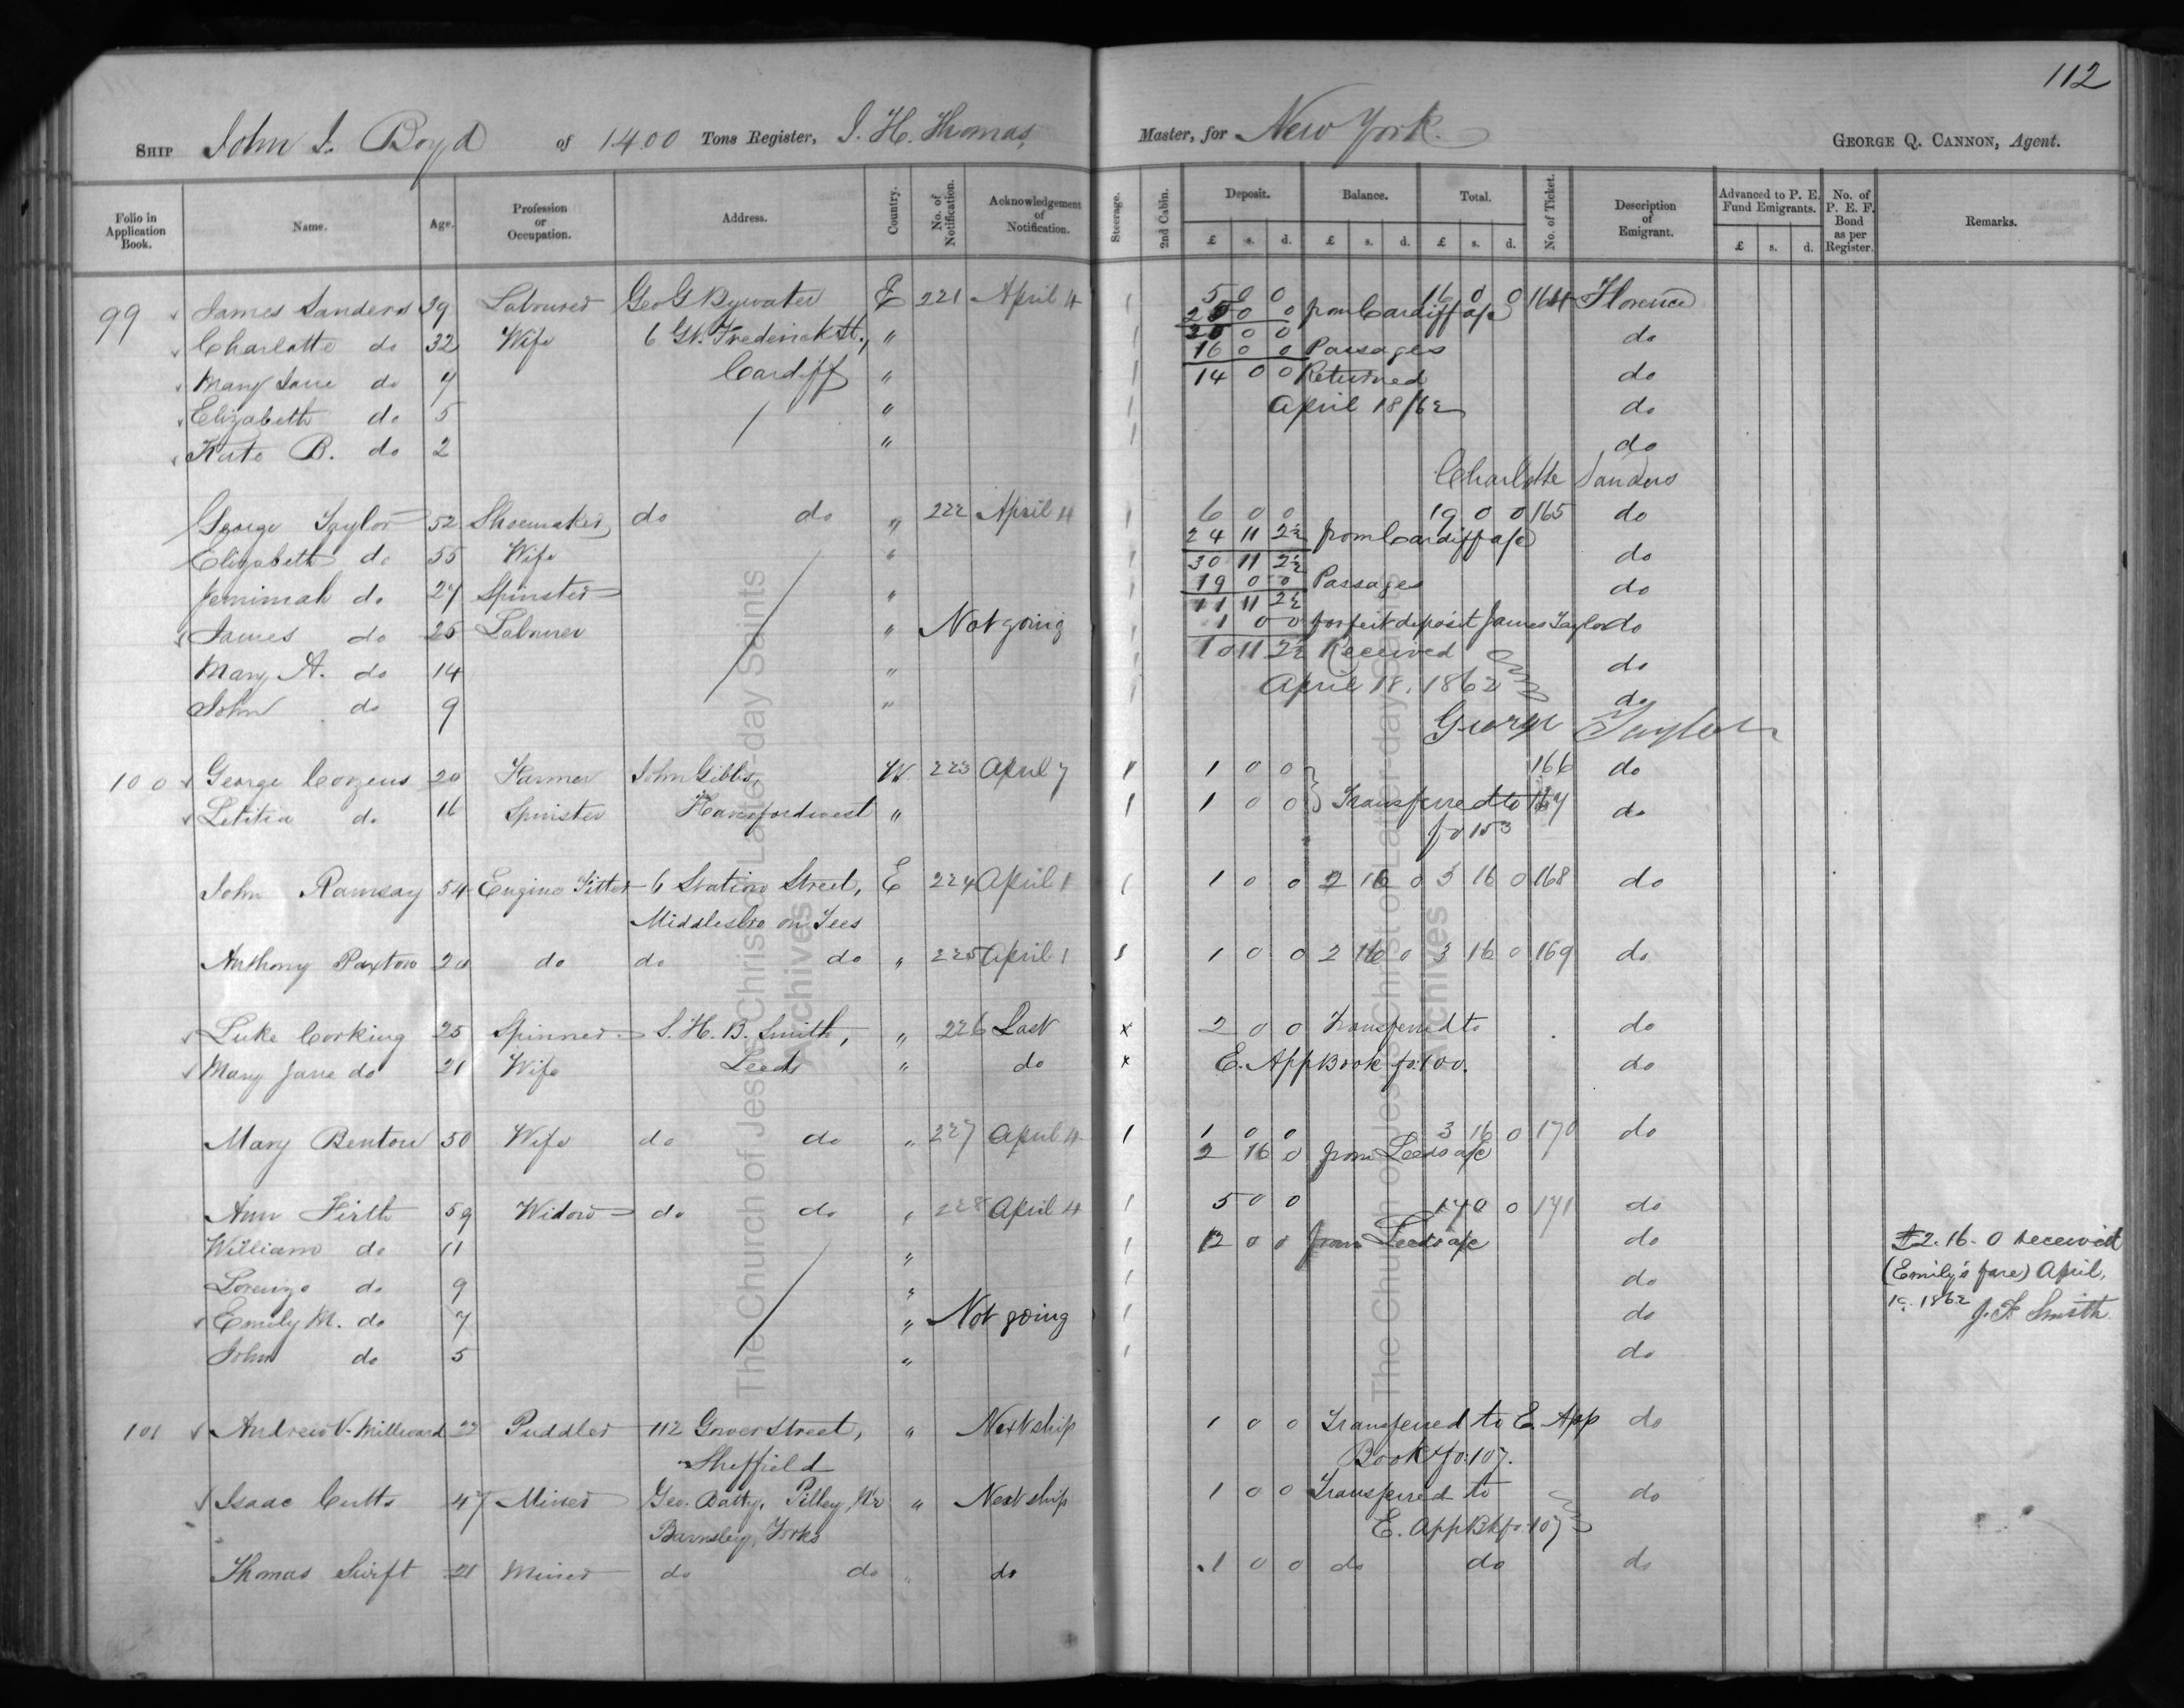 112
SHIP John J. Boyd of 1400 Tons Register, J. H. Thomas, Master, for New York. GEORGE Q. CANNON, Agent.
Folio in Application Book. Name. Age. Profession or Occupation. Address. Country. No. of Notification. Acknowledgement of Notification. Steerage. 2nd Cabin. Deposit. Balance. Total. No. of Ticket. Description of Emigrant. Advanced to P. E. Fund Emigrants. No. of P. E. F. Bond as per Register. Remarks.
£ s. d. £ s. d. £ s. d. £ s. d.
99 James Sanders 39 Labourer Geo G Bywater E 221 April 4 1 5 0 0 16 0 0 164 Florence
0 0 from Cardiff a/c
Charlotte do 32 Wife 6 Gt. Frederick St., " 1 0 0 do
16 0 0 Passages
Mary Jane do 7 Cardiff " 1 14 0 0 Returned do
Elizabeth do 5 " 1 April 18/62 do
Kate B. do 2 " 1 do
Charlotte Sanders
George Taylor 52 Shoemaker do do " 222 April 4 1 6 0 0 19 0 0 165 do
24 11 2½ from Cardiff a/c
Elizabeth do 55 Wife " 1 30 11 2½ do
Jemimah do 27 Spinster " 1 19 0 0 Passages do
11 11 2½
James do 25 Labourer " Not going 1 1 0 0 forfeit deposit James Taylor do
Mary A. do 14 " 1 10 11 2½ Received do
John do 9 " 1 April 18. 1862 do
George Taylor
100 George Cozens 20 Farmer John Gibbs, W 223 April 7 1 1 0 0 166 do
Letitia do 16 Spinster Haverfordwest " 1 1 0 0 Transferred to 167 do
fo 153
John Ramsay 54 Engine Fitter 6 Station Street, E 224 April 1 1 1 0 0 2 16 0 3 16 0 168 do
Middlesbro on Tees
Anthony Paxton 20 do do do " 225 April 1 1 1 0 0 2 16 0 3 16 0 169 do
Luke Corking 25 Spinner S. H. B. Smith, " 226 Last x 2 0 0 Transferred to do
Mary Jane do 21 Wife Leeds " do x E. App Book fo. 100. do
Mary Benton 50 Wife do do " 227 April 4 1 1 0 0 3 16 0 170 do
2 16 0 from Leeds a/c
Ann Firth 59 Widow do do " 228 April 4 1 5 0 0 17 0 0 171 do
William do 11 " 1 12 0 0 from Leeds a/c do £2. 16. 0 received
Lorenzo do 9 " 1 do (Emily's fare) April,
Emily M. do 7 " Not going 1 do 19. 1862 J. F. Smith
John do 5 " 1 do
101 Andrew V. Millward 22 Puddler 112 Gower Street, " Next ship 1 0 0 Transferred to E. App do
Sheffield Book fo. 107.
Isaac Cutts 47 Miner Geo. Batty, Pilley, Nr " Next ship 1 0 0 Transferred to do
Barnsley, Yorks E. App Bk fo. 107
Thomas Swift 21 Miner do do " do 1 0 0 do do do
The Church of Jesus Christ of Latter-day Saints
Archives
The Church of Jesus Christ of Latter-day Saints
Archives